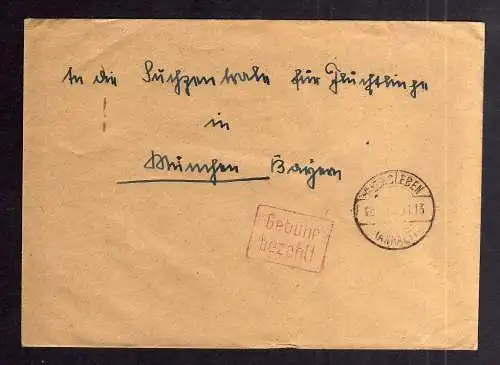 An die Suchzentrale für Flüchtlinge
in
München Bayern
Gebühr
bezahlt
(ANHALT)